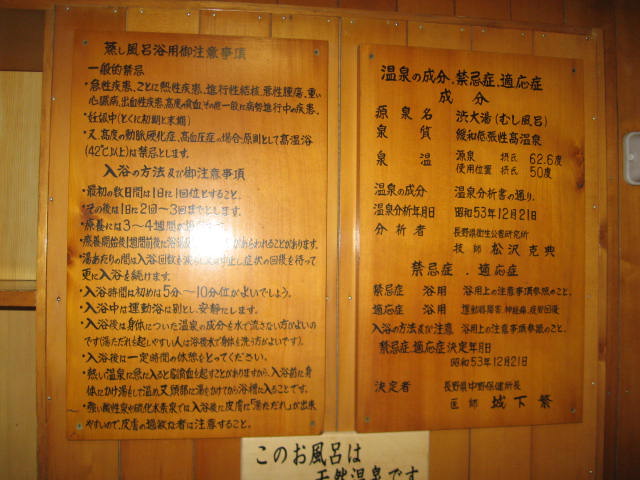 蒸し風呂浴用御注意事項
一般的禁忌
・急性疾患、ことに熱性疾患、進行性結核、悪性腫瘍、重い
心臓病、出血性疾患、高度の貧血、その他一般に病勢進行中の疾患。
・妊娠中(とくに初期と末期)
・又、高度の動脈硬化症、高血圧症の場合、原則として高温浴
(42℃以上)は禁忌とします。
入浴の方法及び御注意事項
・最初の数日間は1日に1回位とすること。
・その後は1日に2回〜3回までとします。
・療養には3〜4週間が
・療養開始後1週間前後に浴湯 があらわれることがあります。
湯あたりの間は入浴回数を減らし又は中止し症状の回復を待って
更に入浴を続けます。
・入浴時間は初めは5分〜10分位がよいでしょう。
・入浴中は運動浴は別とし、安静にします。
・入浴後は身体についた温泉の成分を水で流さない方がよいの
です(湯ただれを起しやすい人は浴後水で身体を洗う方がよいです)。
・入浴後は一定時間の休憩をとってください。
・熱い温泉に急に入ると脳貧血を起すことがありますから、入浴前に身
体にかけ湯をして温め又頭部に湯をかけてから浴槽に入ることです。
・強い酸性泉や硫化水素泉では入浴後に皮膚に「湯ただれ」が出来
やすいので、皮膚の過敏な者は注意すること。
温泉の成分、禁忌症、適応症
成分
源泉名 渋大湯(むし風呂)
泉質 緩和低張性高温泉
泉温 源泉 摂氏 62.6度
使用位置 摂氏 50度
温泉の成分 温泉分析書の通り。
温泉分析年月日 昭和53年12月21日
分析者 長野県衛生公害研究所
技師 松沢克典
禁忌症、適応症
禁忌症 浴用 浴用上の注意事項参照のこと。
適応症 浴用 運動器障害、神経痛、疲労回復
入浴の方法及び注意 浴用上の注意事項参照のこと。
禁忌症、適応症決定年月日
昭和53年12月21日
決定者 長野県中野保健所長
医師 城下繁
このお風呂は
天然温泉です